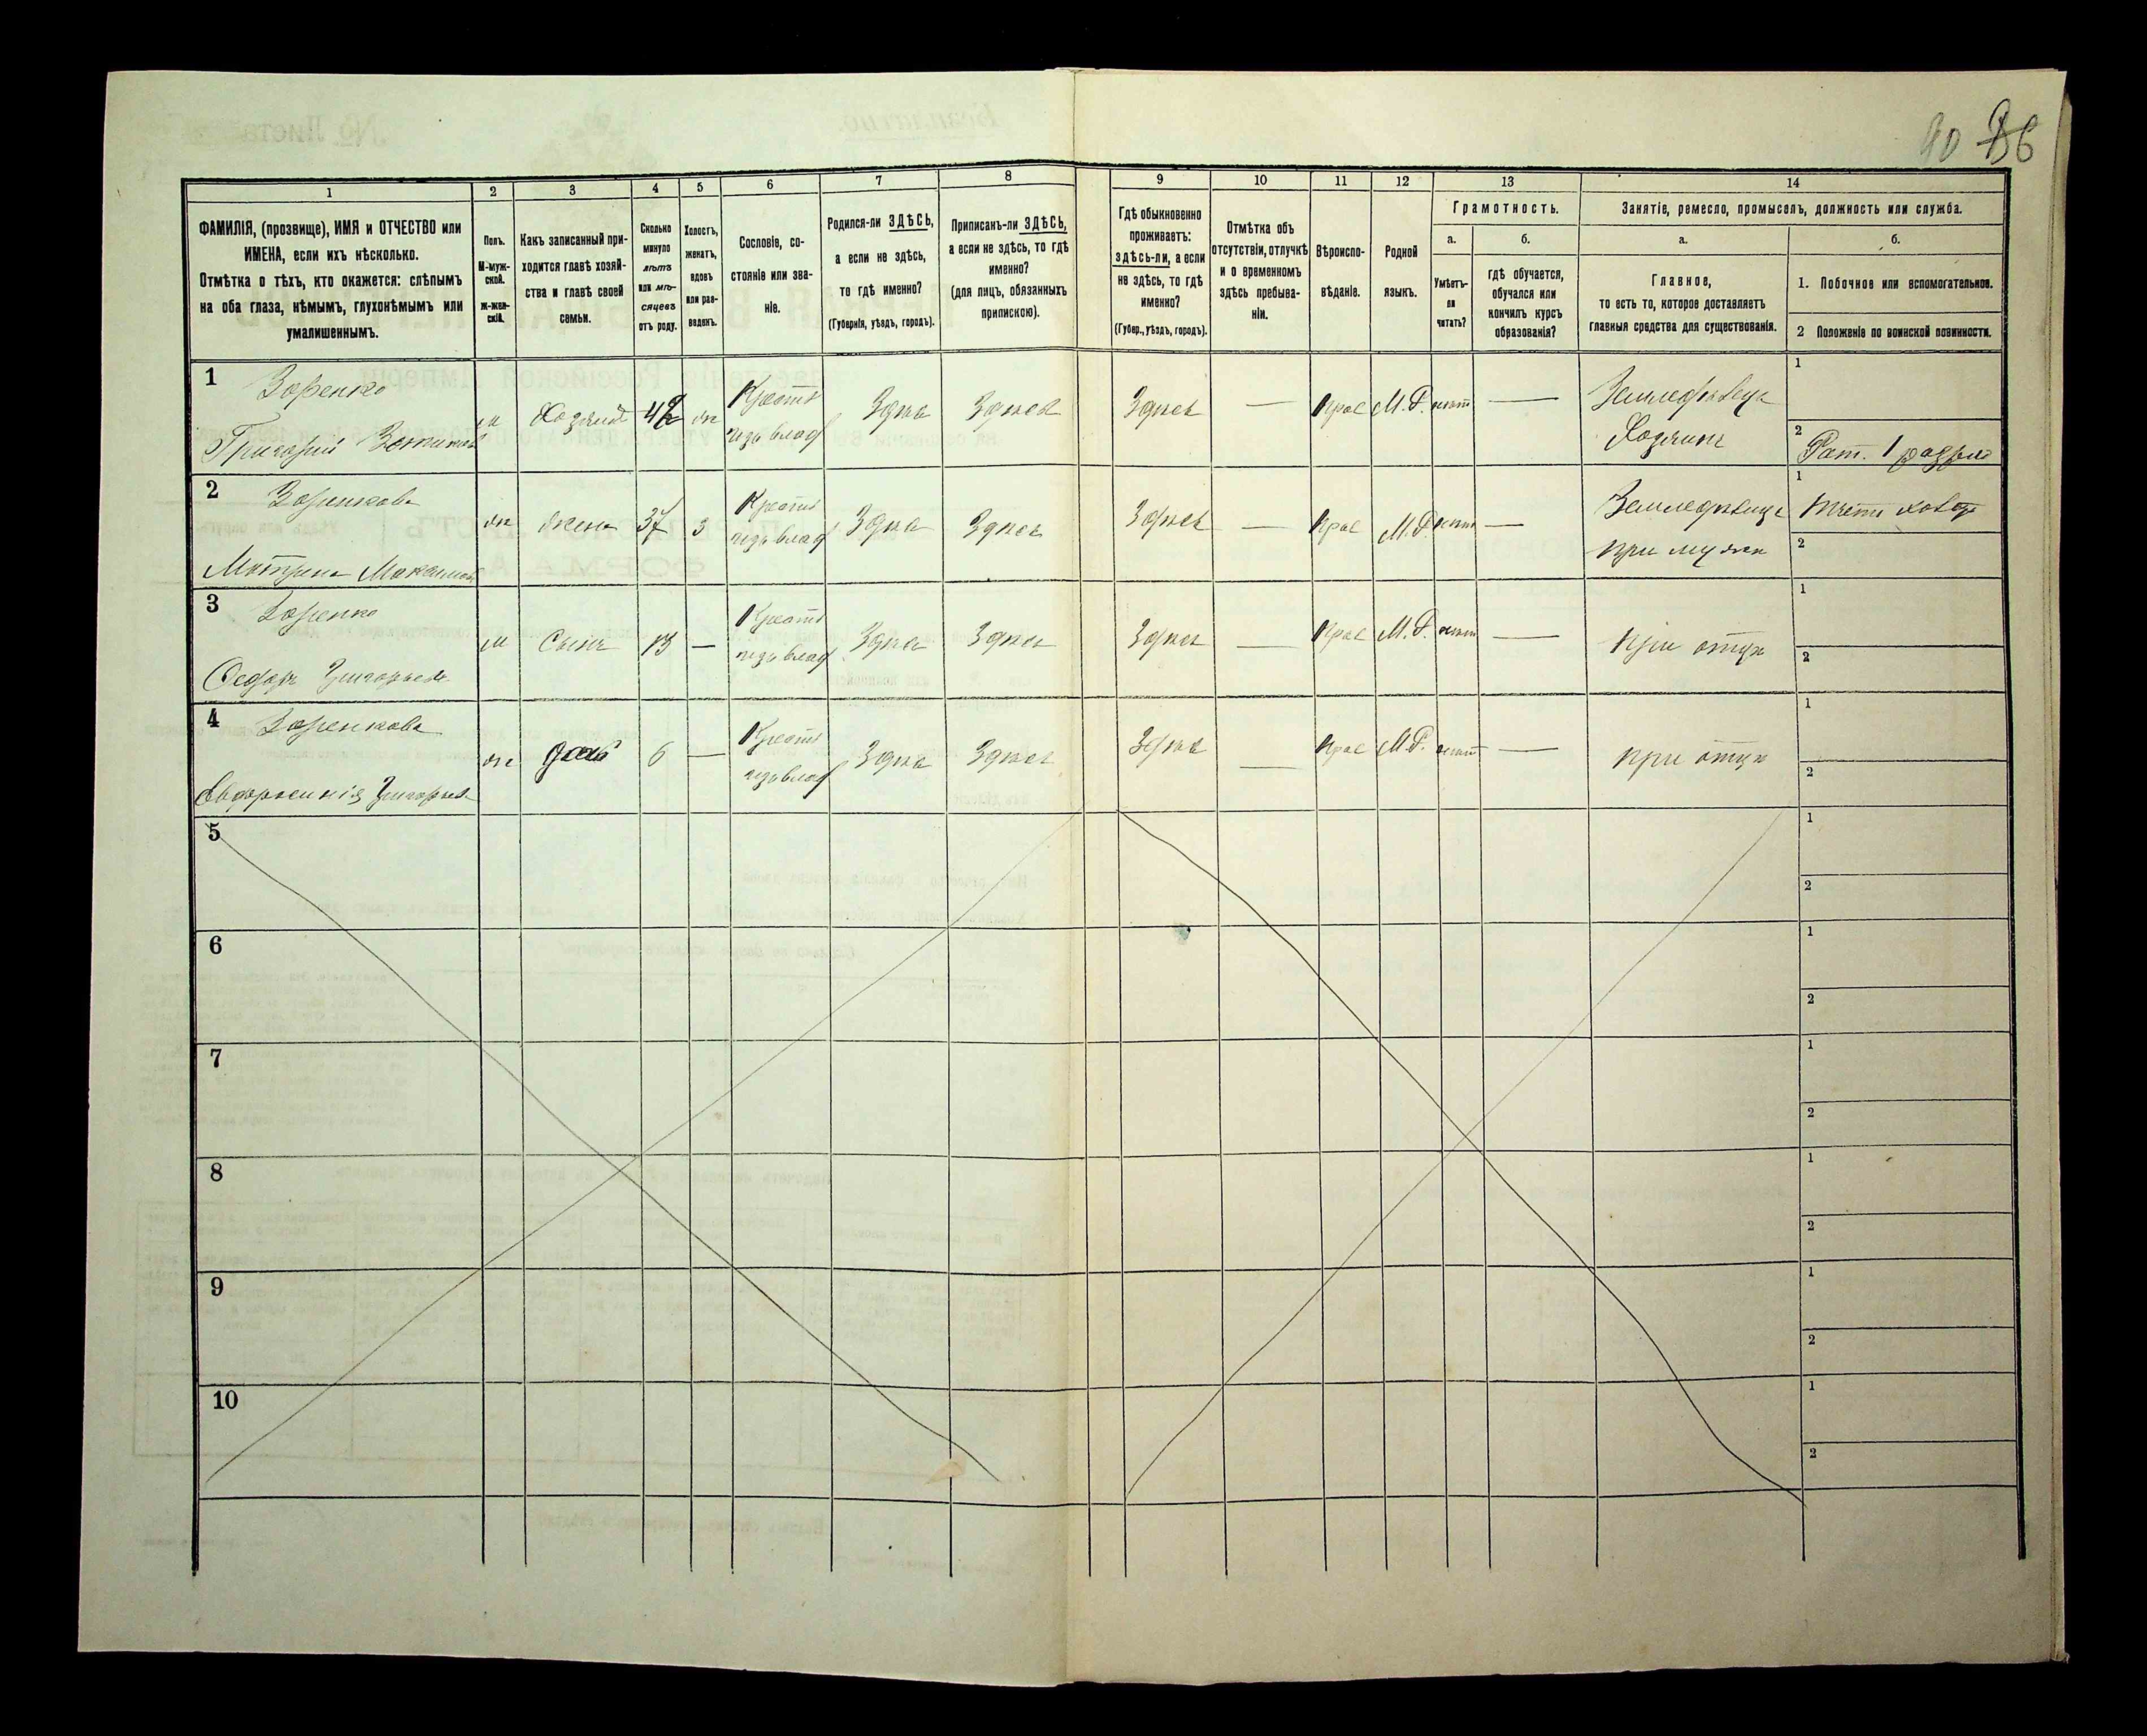 40 86
1 2 3 4 5 6 7 8 9 10 11 12 13 14
ФАМИЛІЯ, (прозвище), ИМЯ и ОТЧЕСТВО или
ИМЕНА, если ихъ нѣсколько.
Отмѣтка о тѣхъ, кто окажется: слѣпымъ
на оба глаза, нѣмымъ, глухонѣмымъ или
умалишеннымъ.
Полъ.
М-муж-
ской.
ж-жен-
скій.
Какъ записанный при-
ходится главѣ хозяй-
ства и главѣ своей
семьи.
Сколько
минуло
лѣтъ
или мѣ-
сяцевъ
отъ роду.
Холостъ,
женатъ,
вдовъ
или раз-
веденъ.
Сословіе, со-
стояніе или зва-
ніе.
Родился-ли ЗДѢСЬ,
а если не здѣсь,
то гдѣ именно?
(Губернія, уѣздъ, городъ).
Приписанъ-ли ЗДѢСЬ,
а если не здѣсь, то гдѣ
именно?
(для лицъ, обязанныхъ
припискою).
Гдѣ обыкновенно
проживаетъ:
здѣсь-ли, а если
не здѣсь, то гдѣ
именно?
(Губер., уѣздъ, городъ).
Отмѣтка объ
отсутствіи, отлучкѣ
и о временномъ
здѣсь пребыва-
ніи.
Вѣроиспо-
вѣданіе.
Родной
языкъ.
Грамотность.
а.
Умѣетъ-
ли
читать?
б.
гдѣ обучается,
обучался или
кончилъ курсъ
образованія?
Занятіе, ремесло, промыселъ, должность или служба.
а.
Главное,
то есть то, которое доставляетъ
главныя средства для существованія.
б.
1. Побочное или вспомогательное.
2 Положеніе по воинской повинности.
1 Зоренко
Григорий
м Хозяинъ 42 ж Крестъ
изъ влад Здѣсь Здѣсь Здѣсь — Прав М.Р. нѣтъ — Земледѣлецъ
Хозяинъ
1
2 Рат. 1 разряда
2 Зоренкова
Матрена
ж жена 37 з Крестъ
изъ влад Здѣсь Здѣсь Здѣсь — Прав М.Р. нѣтъ — Земледѣлецъ
при мужѣ
1
2
3 Зоренко
Федоръ Григорьевъ
м Сынъ 13 — Крестъ
изъ влад Здѣсь Здѣсь Здѣсь — Прав М.Р. нѣтъ — при отцѣ
1
2
4 Зоренкова
Евфросинія Григорьев
ж дочь 6 — Крестъ
изъ влад Здѣсь Здѣсь Здѣсь — Прав М.Р. нѣтъ — при отцѣ
1
2
5
1
2
6
1
2
7
1
2
8
1
2
9
1
2
10
1
2